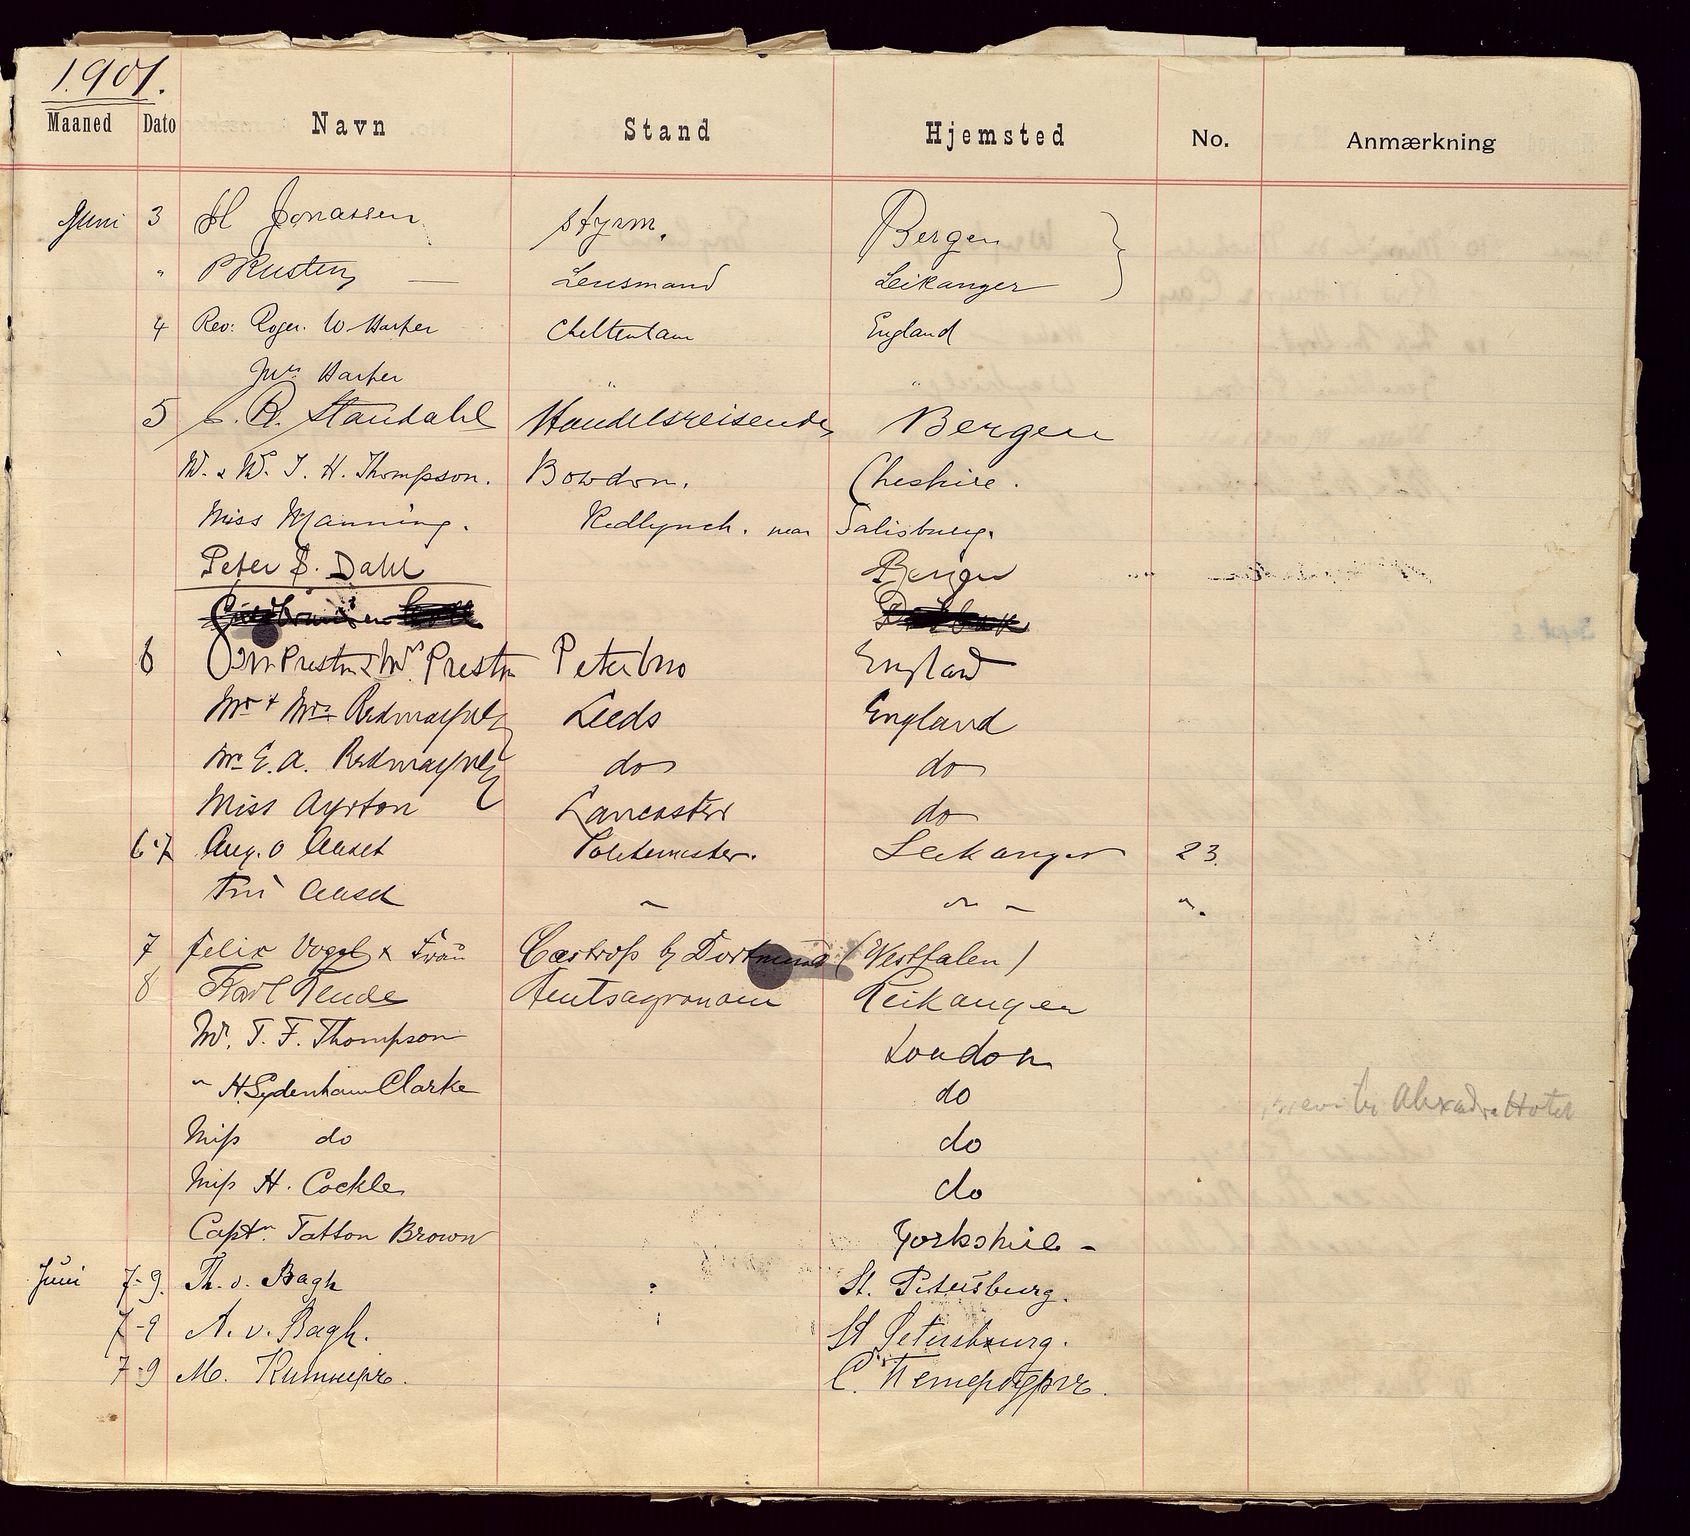 1901.
Maaned Dato Navn Stand Hjemsted No. Anmærkning
Juni 3 H Jonassen styrm. Bergen
" Lensmand Leikanger
4 Rev: Roger. W Harper Cheltenham England
Mrs Harper " "
5 R. Standahl Handelsreisende Bergen
M. & M. T. H. Thompson. Bowdon. Cheshire.
Miss Manning. Redlynch. near Salisbury.
Peter B. Dahl Bergen
6 Preston & Mrs. Preston Peterboro England
Mr & Mrs Redmayne Leeds England
Mr E. A. Redmayne do do
Miss Ayrton Lancaster do
6-7 Aug. O Politimester. Leikanger 23.
Fru " " " ".
7 Felix Vogel & Frau Castrop by Dortmund (Westfalen)
8 Amtsagronom Leikanger
Mr. T. F. Thompson London
" H. Sydenham Clarke do
Miss do do
Miss H. Cockle do
Alexandra Hotel
Captn. Tatton Brown Yorkshire -
Juni 7-9. Th. v. Bagh St. Petersburg.
7-9 A. v. Bagh. St Petersburg.
7-9 М. С. Петербургъ.